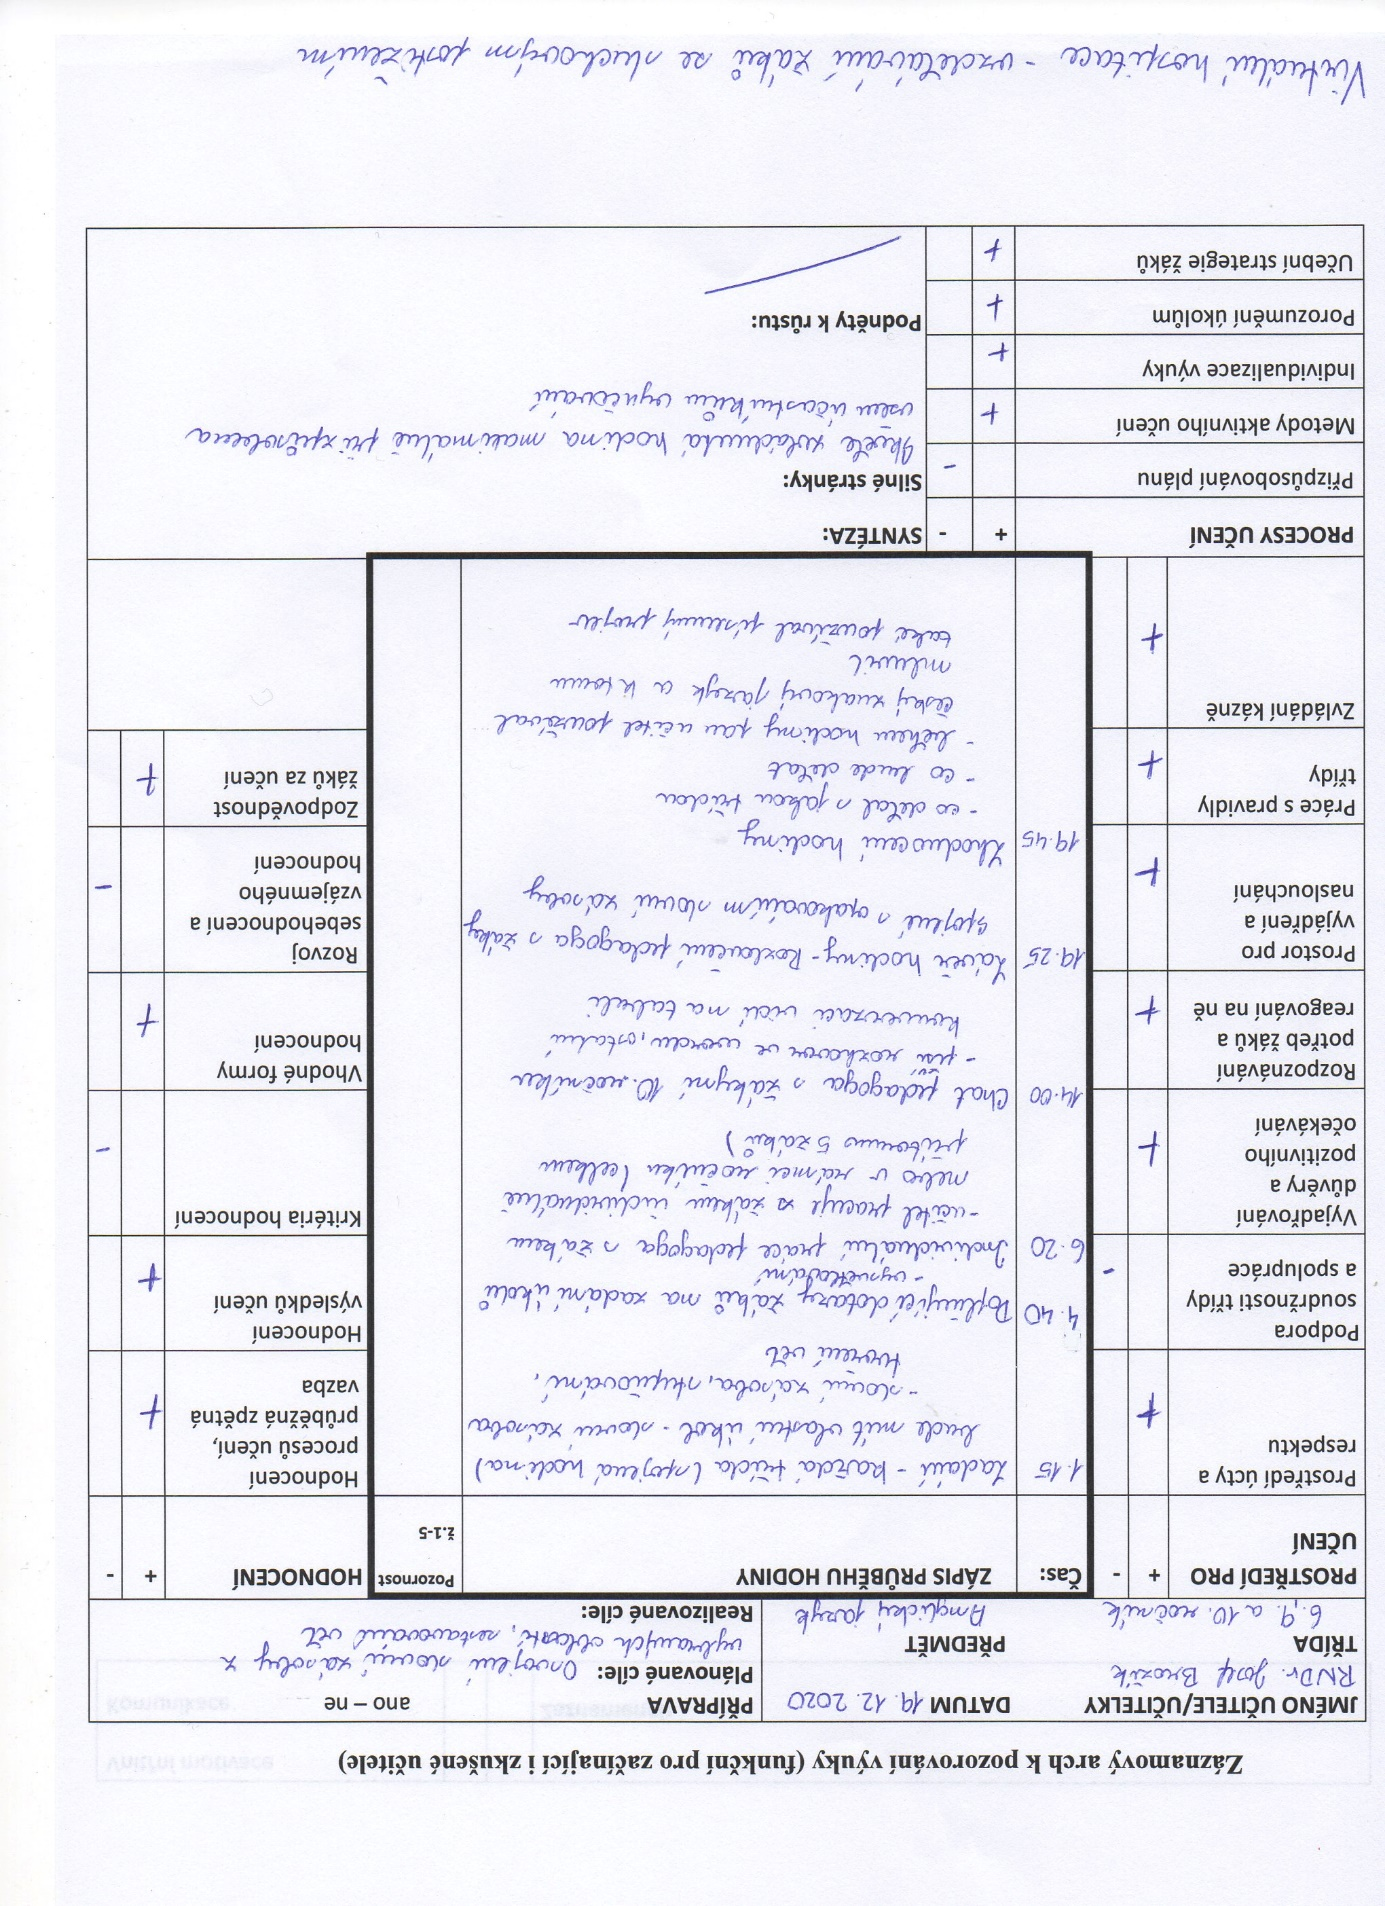 Záznamový arch k pozorování výuky (funkční pro začínající i zkušené učitele)
JMÉNO UČITELE/UČITELKY
RNDr. Josef Brožík
DATUM 19. 12. 2020
PŘÍPRAVA
ano – ne
Plánované cíle: Osvojení slovní zásoby z
vybraných oblastí, sestavování vět
Realizované cíle:
TŘÍDA
6., 9. a 10. ročník
PŘEDMĚT
Anglický jazyk
PROSTŘEDÍ PRO
UČENÍ
+
-
Čas:
ZÁPIS PRŮBĚHU HODINY
Pozornost
ž.1-5
HODNOCENÍ
+
-
Prostředí úcty a
respektu
+
Podpora
soudržnosti třídy
a spolupráce
-
Vyjadřování
důvěry a
pozitivního
očekávání
+
Rozpoznávání
potřeb žáků a
reagování na ně
+
Prostor pro
vyjádření a
naslouchání
+
Práce s pravidly
třídy
+
Zvládání kázně
+
1.15 Zadání - každá třída (spojená hodina)
bude mít vlastní úkol - slovní zásoba
- slovní zásoba, stupňování,
tvoření vět
4.40 Doplňující dotazy žáků na zadání úkolů
- vysvětlování
6.20 Individuální práce pedagoga s žákem
- učitel pracuje s žákem individuálně
nebo v rámci ročníku (celkem
přítomno 5 žáků)
14.00 Chat pedagoga s žákyní 10. ročníku
- píší rozhovor ve wordu, ostatní
konverzaci vidí na tabuli
19.25 Závěr hodiny - Rozloučení pedagoga s žáky
spojené s opakováním slovní zásoby
19.45 Zhodnocení hodiny
- co dělal s jakou třídou
- co bude dělat
- během hodiny pan učitel používal
český znakový jazyk a k tomu
mluvil
také používal písemný projev
Hodnocení
procesů učení,
průběžná zpětná
vazba
+
Hodnocení
výsledků učení
+
Kritéria hodnocení
-
Vhodné formy
hodnocení
+
Rozvoj
sebehodnocení a
vzájemného
hodnocení
-
Zodpovědnost
žáků za učení
+
PROCESY UČENÍ
+
-
Přizpůsobování plánu
-
Metody aktivního učení
+
Individualizace výuky
+
Porozumění úkolům
+
Učební strategie žáků
+
SYNTÉZA:
Silné stránky:
Skvěle zvládnutá hodina maximálně přizpůsobena
všem účastníkům vyučování
Podněty k růstu:
Virtuální hospitace - vzdělávání žáků se sluchovým postižením